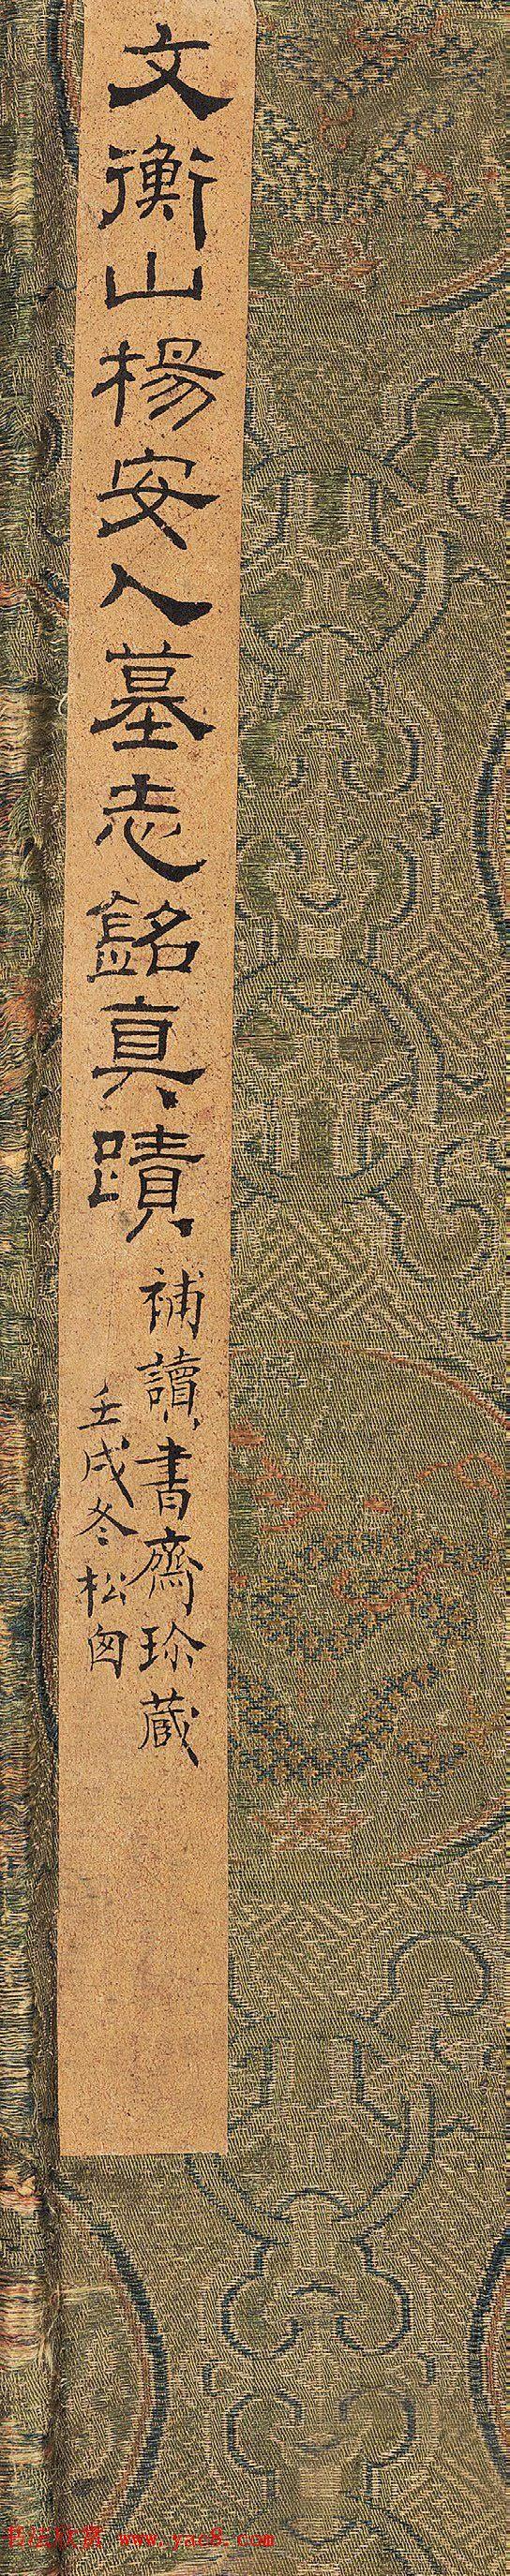 文衡山楊安人墓志銘真蹟
補讀書齋珍蔵
壬戌冬松匈
书法欣赏 www.yac8.com